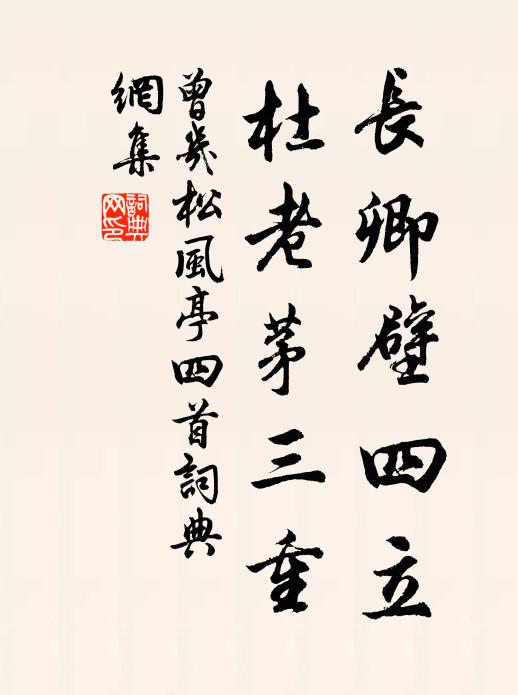 長卿壁四立
杜老茅三重
曾幾松風亭四首詞典
網集
詞典
网印